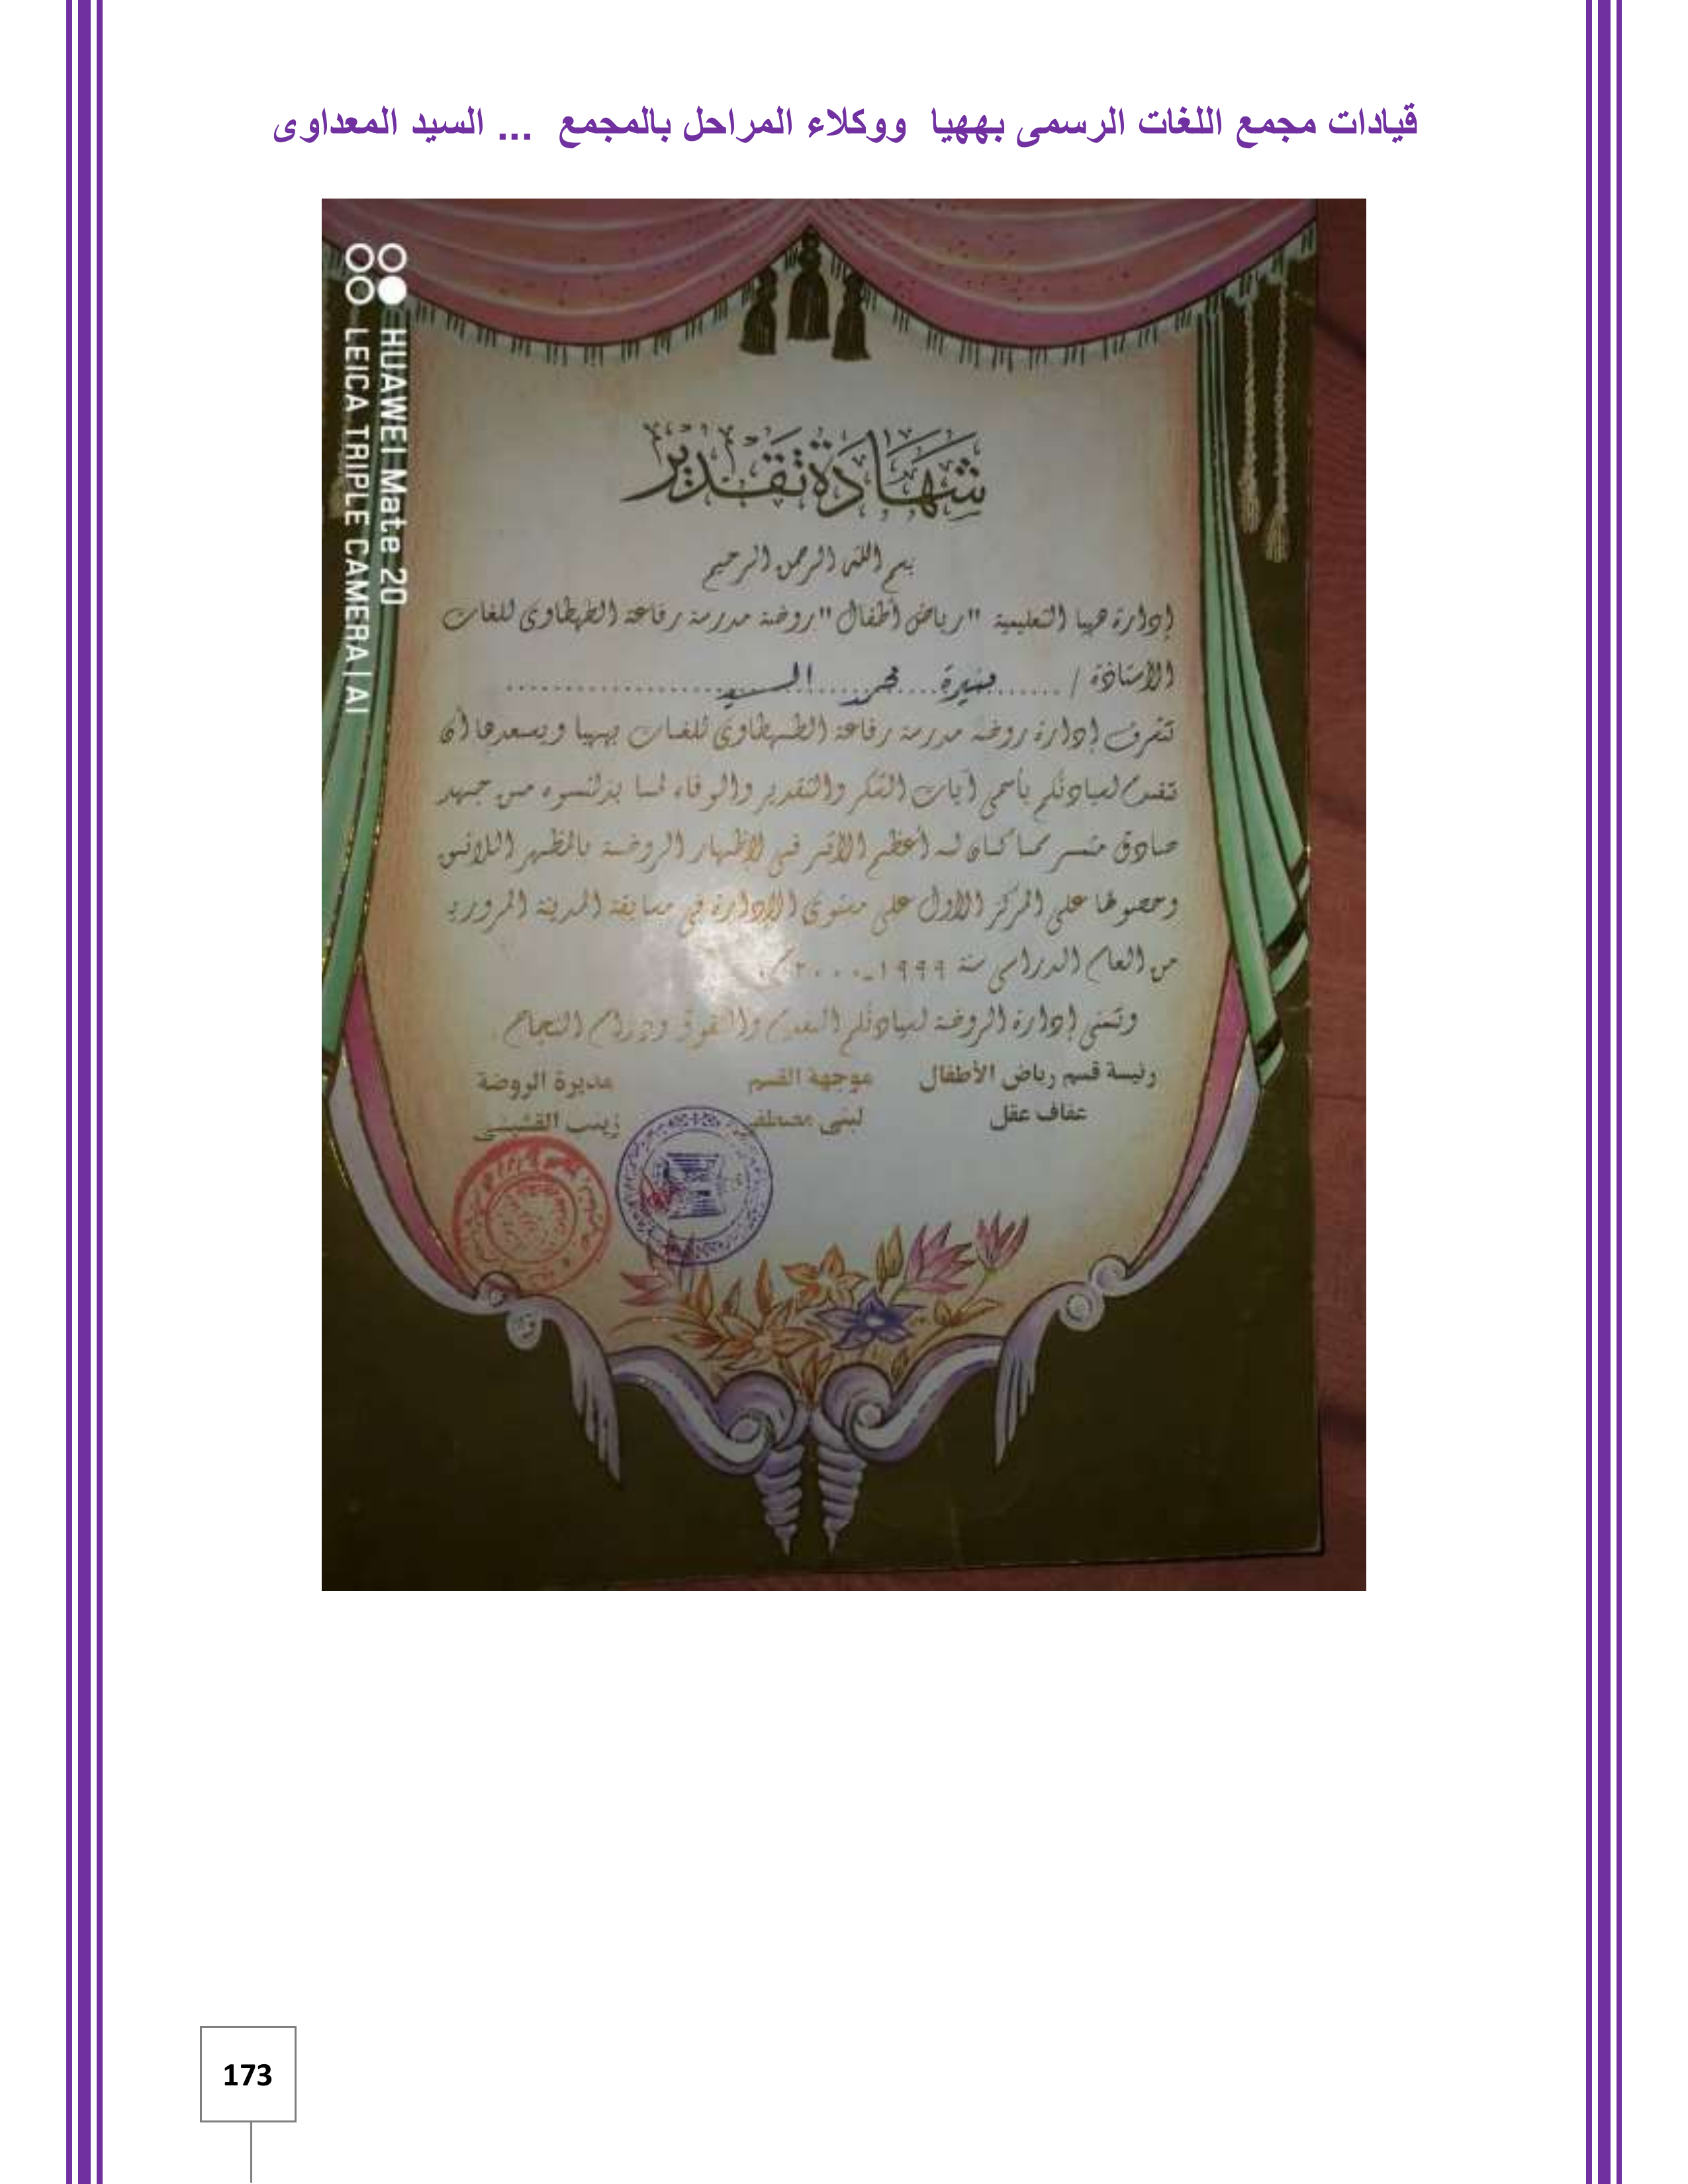 قيادات مجمع اللغات الرسمى بههيا ووكلاء المراحل بالمجمع ... السيد المعداوى
HUAWEI Mate 20
LEICA TRIPLE CAMERA | AI
شهادة تقدير
بسم الله الرحمن الرحيم
إدارة ههيا التعليمية "رياض أطفال" روضة مدرسة رفاعة الطهطاوى للغات
الأستاذة / منيرة محمد السيد
تتشرف إدارة روضة مدرسة رفاعة الطهطاوى للغات بههيا ويسعدها أن
تقدم لسيادتكم بأسمى آيات الشكر والتقدير والوفاء لما بذلتموه من جهد
صادق مثمر مما كان له أعظم الأثر فى إظهار الروضة بالمظهر اللائق
وحصولها على المركز الأول على مستوى الإدارة فى مسابقة المدينة المرورية
من العام الدراسى سنة ١٩٩٩ـ٢٠٠٠م.
وتتمنى إدارة الروضة لسيادتكم التقدم والتفوق ودوام النجاح.
رئيسة قسم رياض الأطفال موجهة القسم مديرة الروضة
عفاف عقل لبنى مصطفى زينب القشيشى
173